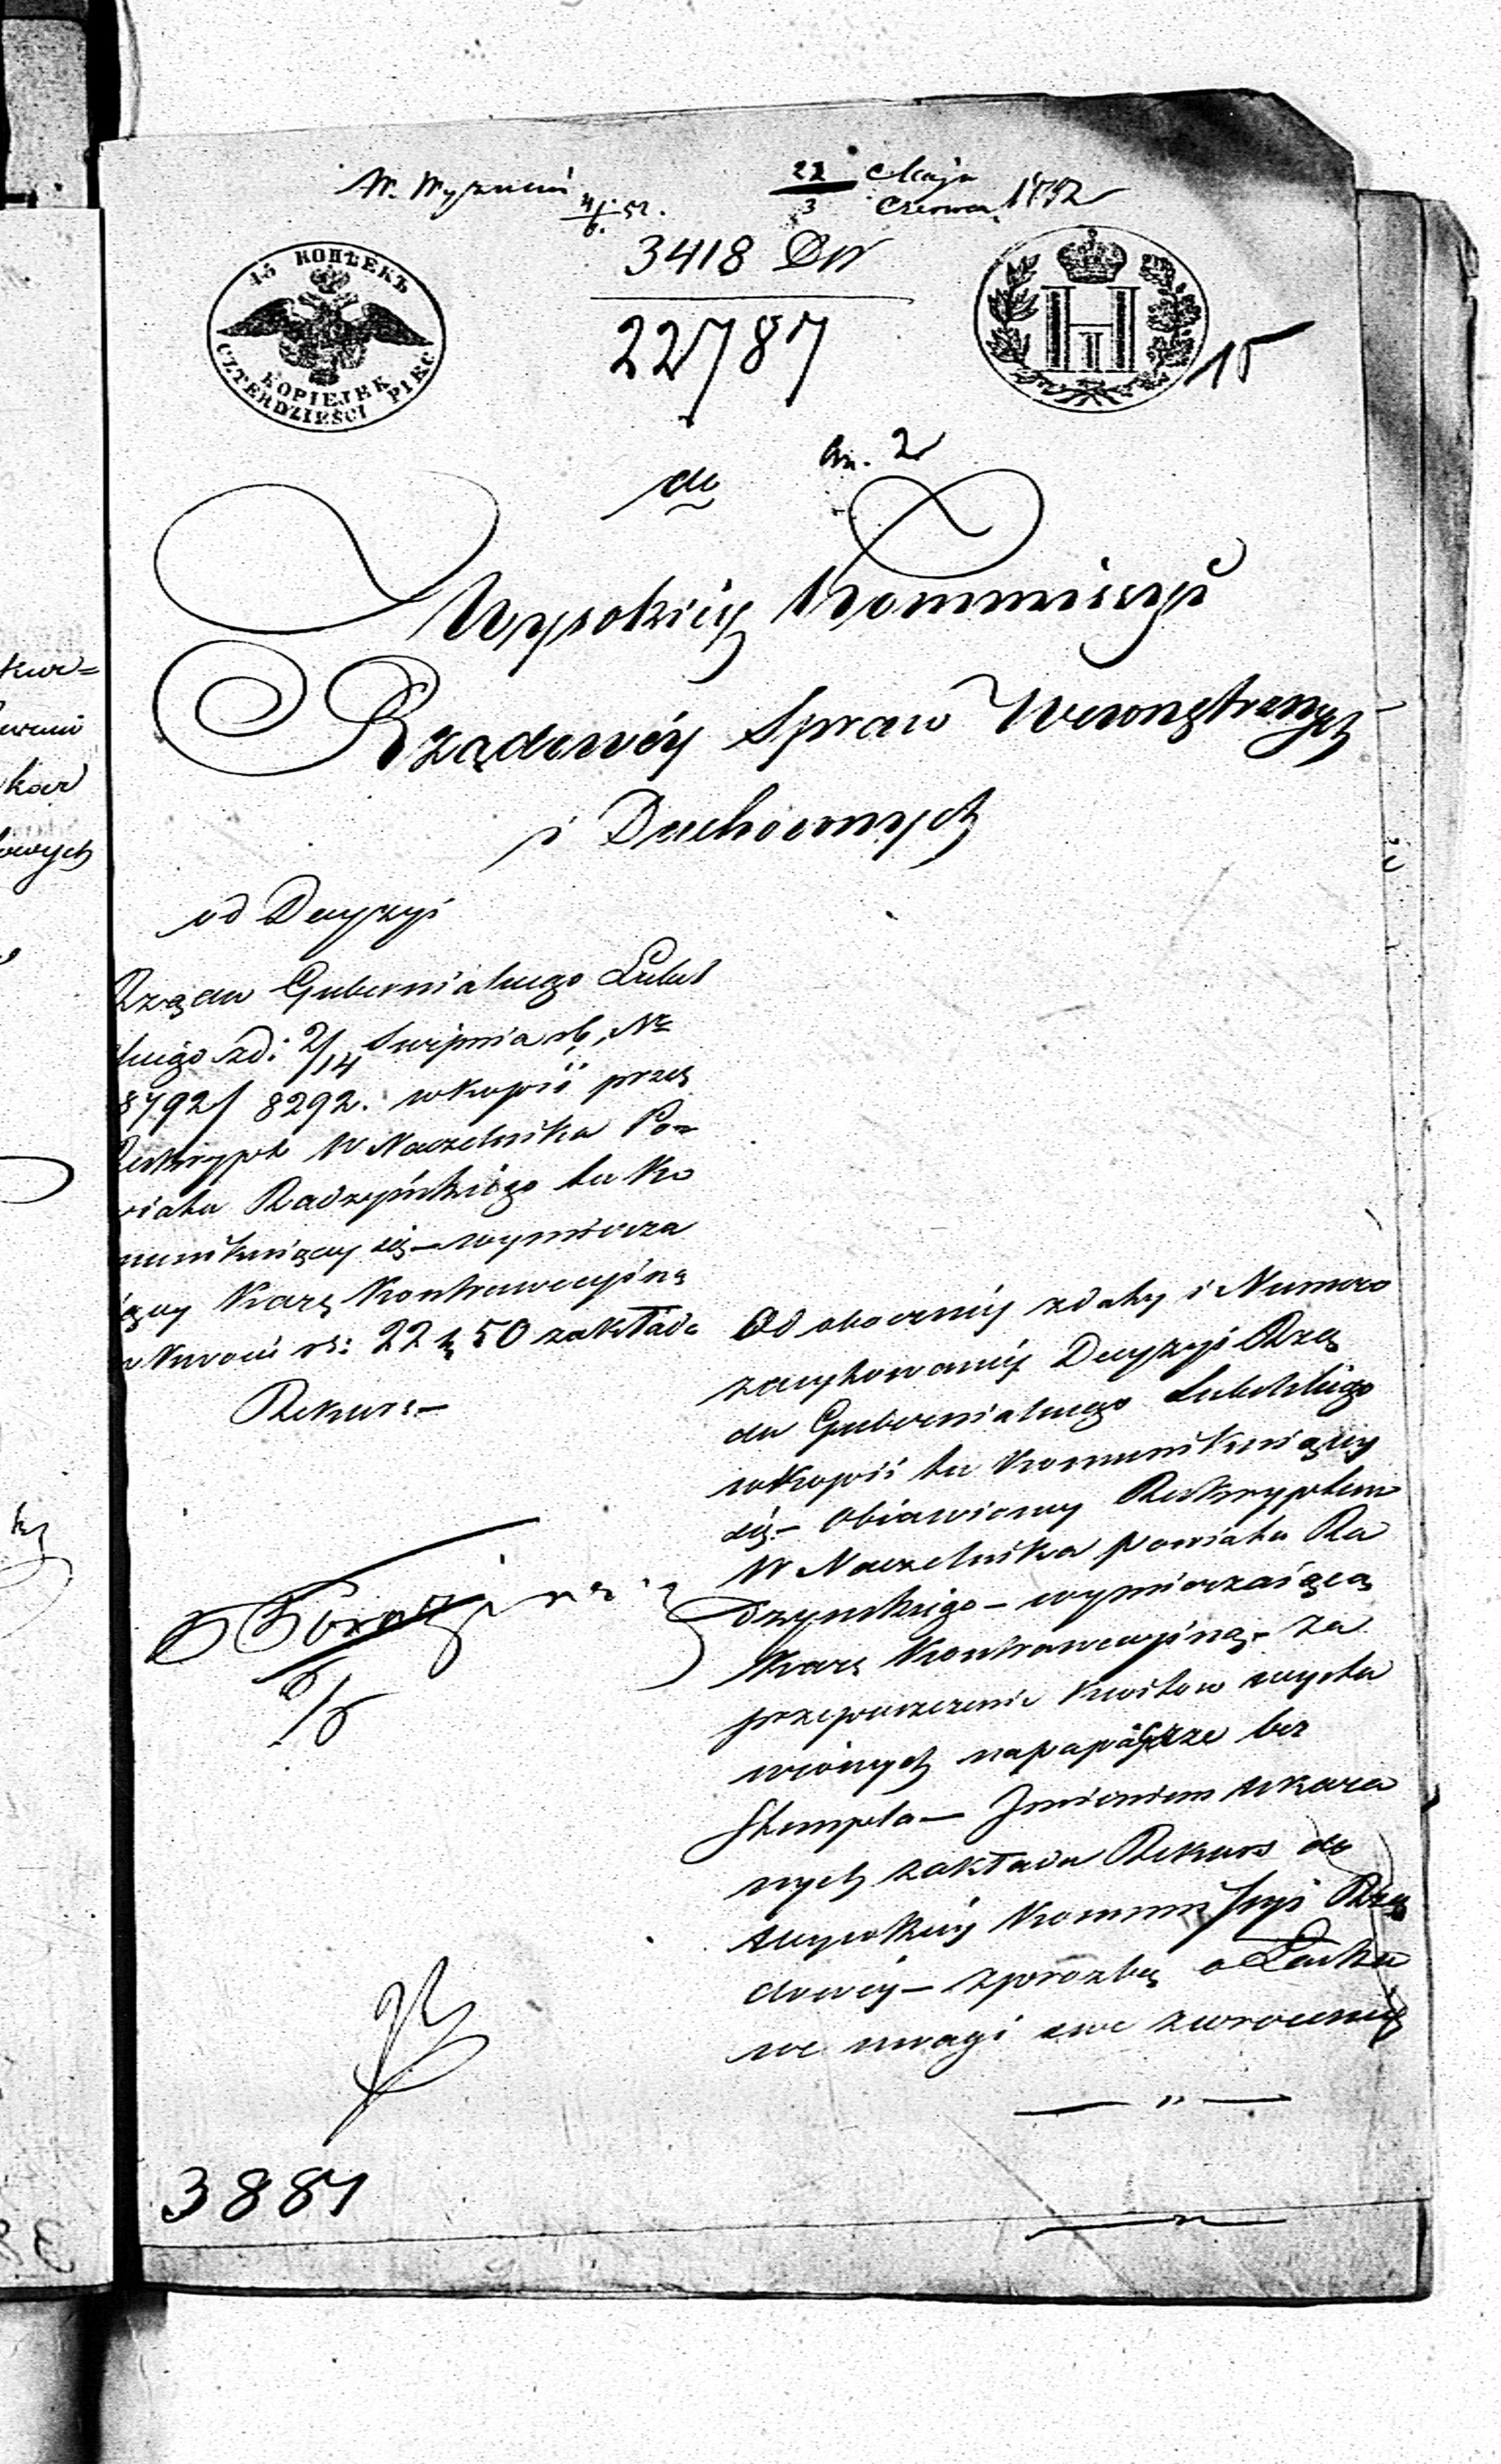 W.
22 Maja
3 Czerwca 1852
4/6. 52.
3418 DW
22787
45 КОПѢЕКЪ
KOPIEJEK
CZTERDZIEŚCI PIĘĆ
H I
15
An. 2
do
Wysokiéy Kommissyi
Rządowéy Spraw Wewnętrznych
i Duchownych
od Decyzyi
Rządu Gubernialnego Lubel
skiego zd: 2/14 Sierpnia rb, Nr
8792/8292. w kopii przez
Reskrypt W Naczelnika Po=
wiatu Radzyńskiego tu Ko
munikuiącey się – wymierza
iącey Karę Kontrawencyiną
w kwocie rs: 22 k 50 zakłada
Rekurs –
Od obocznéy z daty i Numero
zacytowanéy Decyzyi Rzą
du Gubernialnego Lubelskiego
w Kopii tu Komunikuiącéy
się – obiawioney Reskryptem
W Naczelnika Powiatu Ra
dzyńskiego – wymierzaiącą
Karę Kontrawencyiną – za
przepuszczenie Kwitow wysta
wionych na papierze bez
Stempla – Imieniem ukara
nych zakłada Rekurs do
Wysokiéy Kommissyi Rzą
dowéy – z prozbą o Łaska
we uwagi swe zwrocenie
– " –
3881
kur=
kar
owych